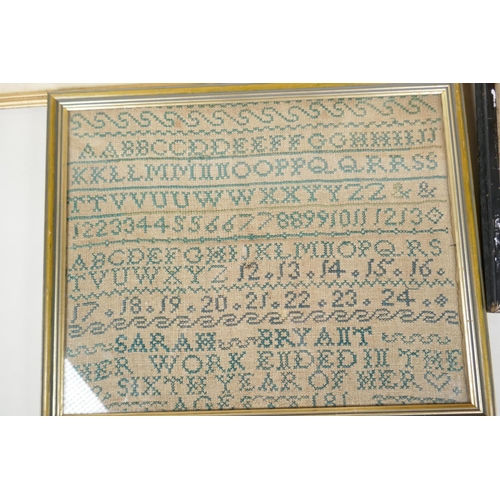 AABBCCDDEEFFGGHHIIJJ
KKLLMMNNOOPPQQRRSS
TTVVUUWWXXYYZZ&&
1223344556677889910111213
ABCDEFGHIJKLMNOPQRS
TUVWXYZ 12.13.14.15.16.
17.18.19.20.21.22.23.24.
SARAH BRYANT
HER WORK ENDED IN THE
SIXTH YEAR OF HER
AGE 181